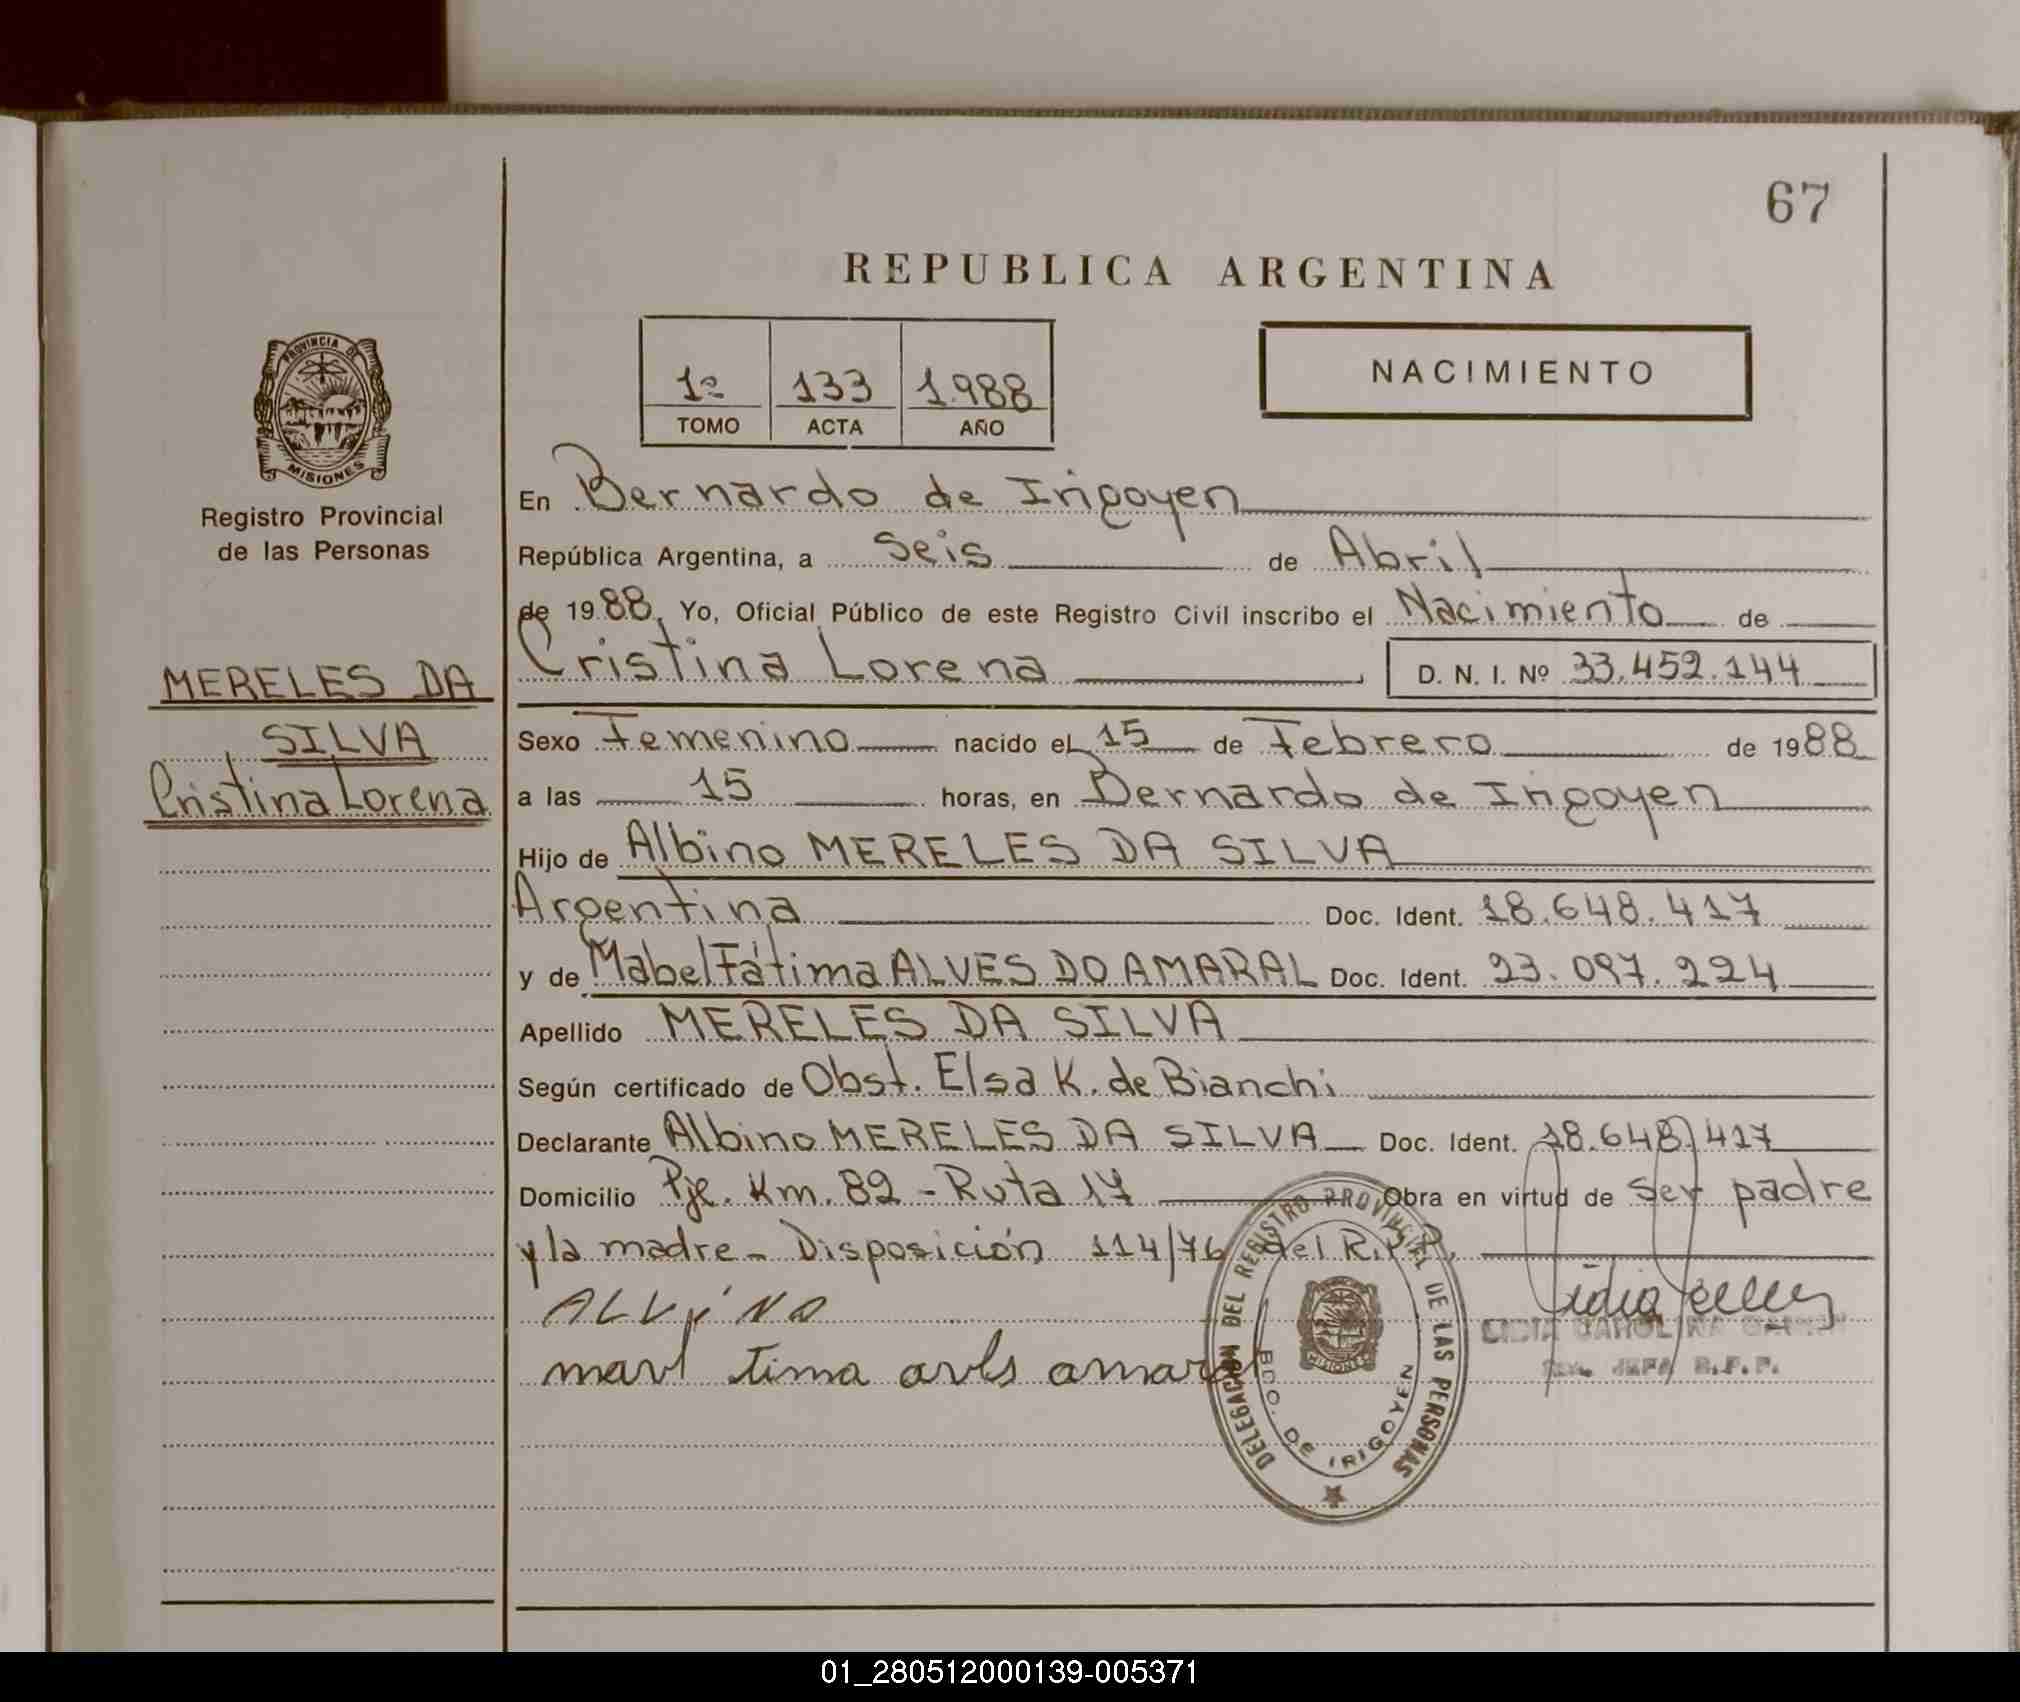 67
REPUBLICA ARGENTINA
PROVINCIA DE
MISIONES
Registro Provincial
de las Personas
1º 133 1.988
TOMO ACTA AÑO
NACIMIENTO
En Bernardo de Irigoyen
República Argentina, a Seis de Abril
de 1988, Yo, Oficial Público de este Registro Civil inscribo el Nacimiento de
Cristina Lorena D. N. I. Nº 33.452.144
MERELES DA
SILVA
Cristina Lorena
Sexo Femenino nacido el 15 de Febrero de 1988
a las 15 horas, en Bernardo de Irigoyen
Hijo de Albino MERELES DA SILVA
Argentina Doc. Ident. 18.648.417
y de Mabel Fátima ALVES DO AMARAL Doc. Ident. 23.097.224
Apellido MERELES DA SILVA
Según certificado de Obst. Elsa K. de Bianchi
Declarante Albino MERELES DA SILVA Doc. Ident. 18.648.417
Domicilio Pje. Km. 82 - Ruta 17 Obra en virtud de ser padre
y la madre - Disposición 114/76 del R.P.P.
ALViNO
marl tima avls amaral
DELEGACION DEL REGISTRO PROVINCIAL DE LAS PERSONAS
BDO. DE IRIGOYEN
MISIONES
CAROLINA
JEFA R.P.P.
01_280512000139-005371